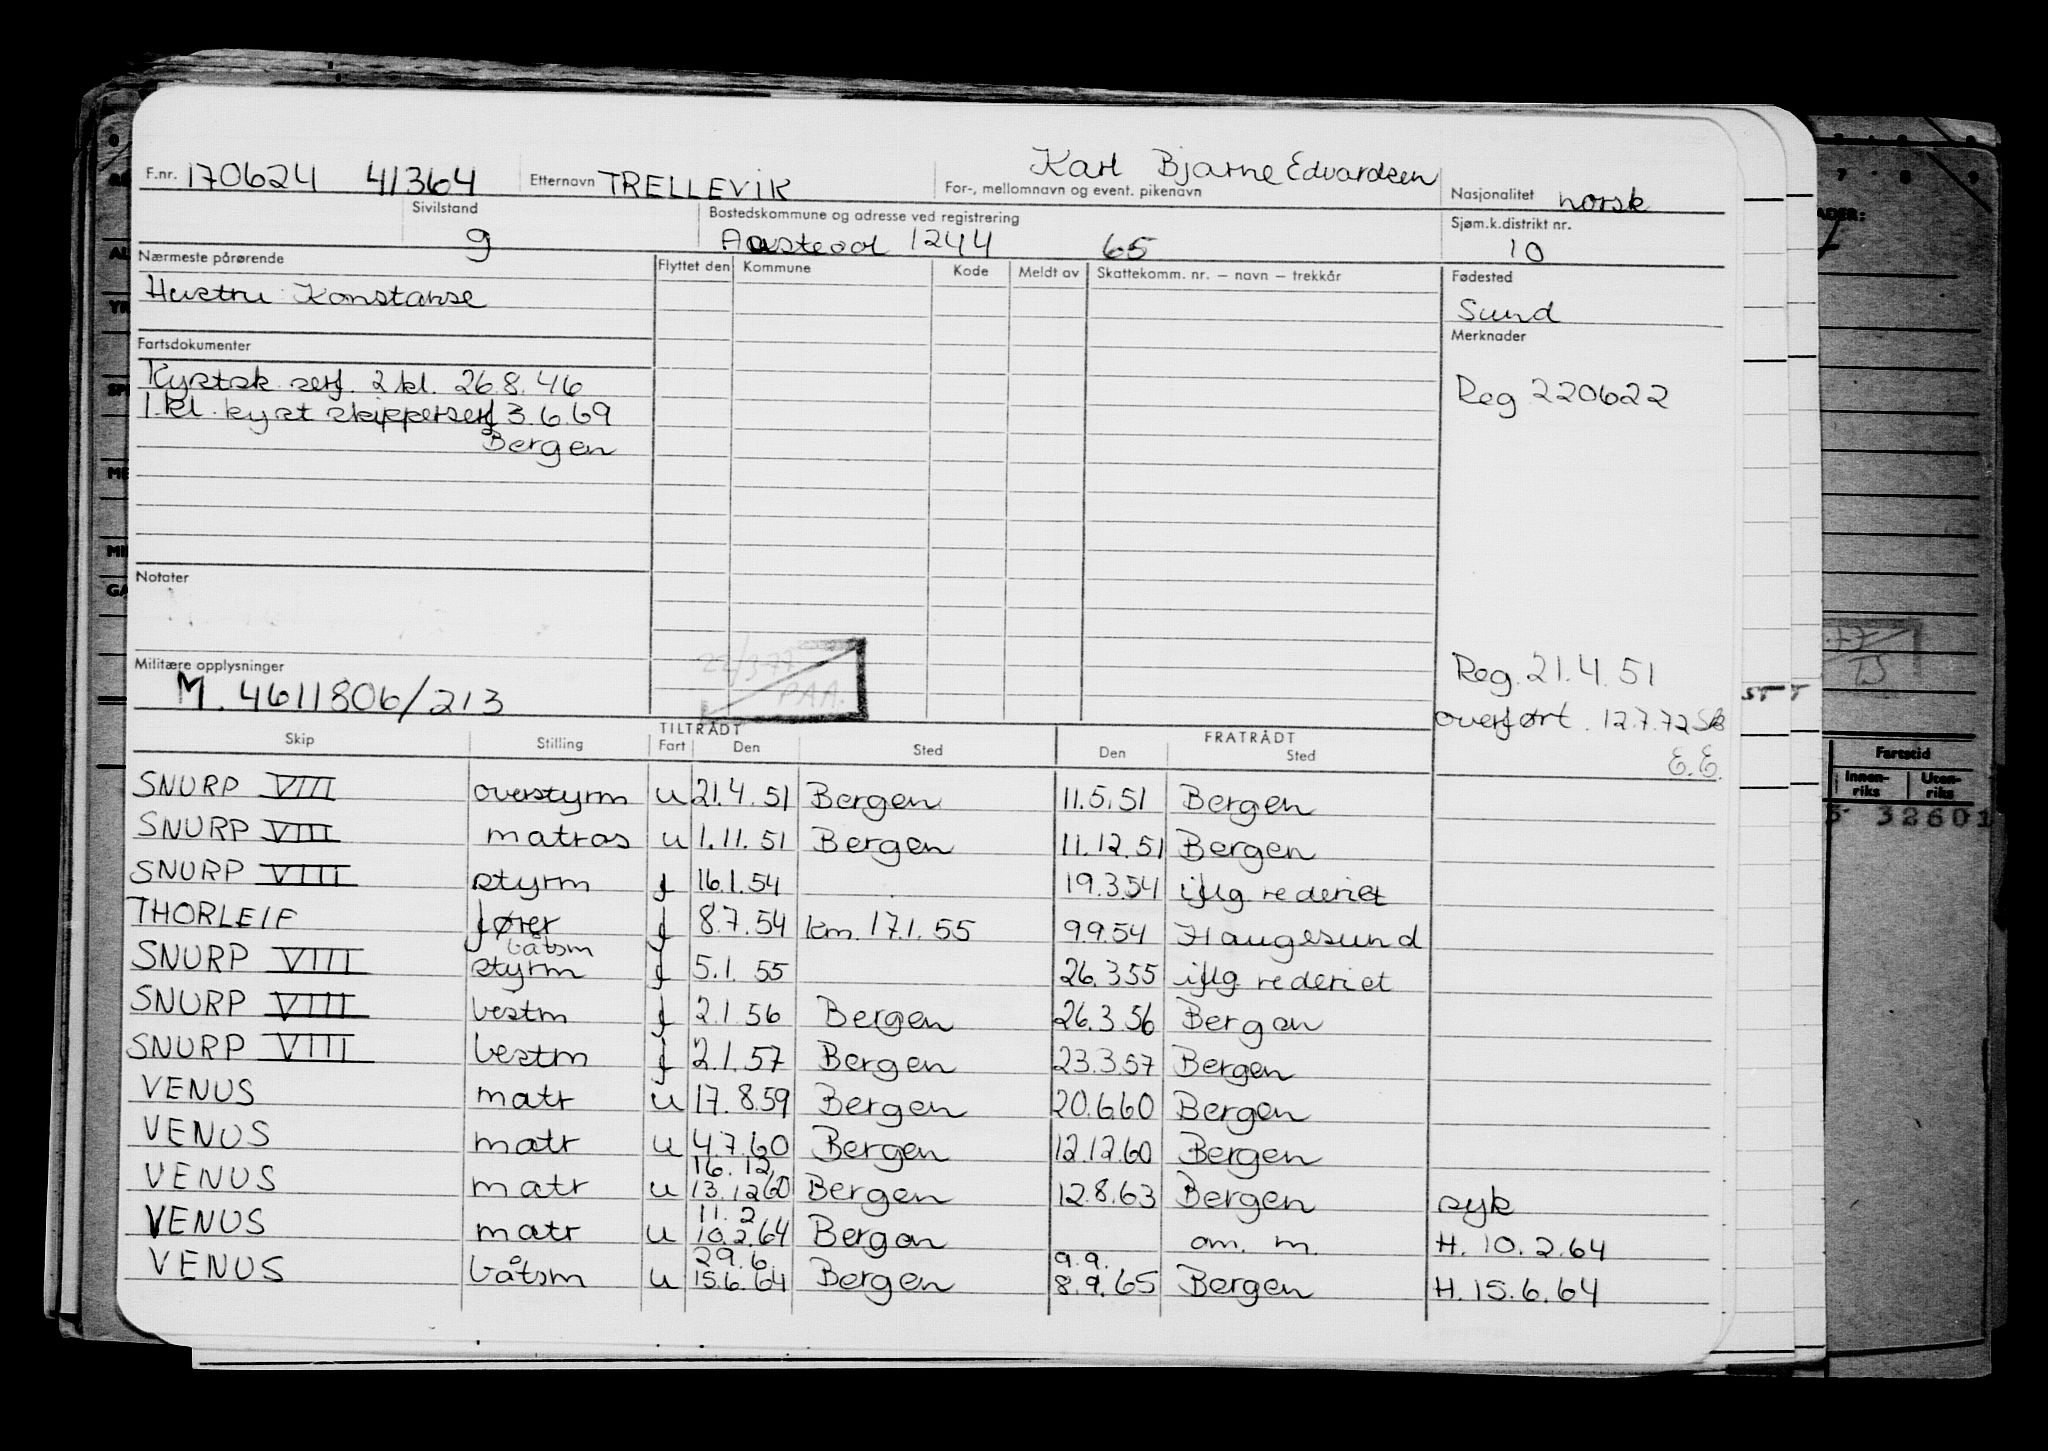 Karl Bjarne Edvardsen
F.nr. 170624 41364 Etternavn TRELLEVIK For-, mellomnavn og event. pikenavn Nasjonalitet norsk
Sivilstand Bostedskommune og adresse ved registrering Sjøm.k.distrikt nr.
g 1244 65 10
Nærmeste pårørende Flyttet den Kommune Kode Meldt av Skattekomm. nr. – navn – trekkår Fødested
Hustru Konstanse Sund
Fartsdokumenter Merknader
Kystsk. serf. 2 kl. 26.8.46 Reg 220622
1.kl. kyst skipperserf 3.6.69
Bergen
Notater
Militære opplysninger 22/3-77 Reg. 21.4.51
M. 4611806/213 PAA. overført. 12.7.72
E.E.
Skip Stilling TILTRÅDT Fart Den Sted FRATRÅDT Den Sted
SNURP VIII overstyrm u 21.4.51 Bergen 11.5.51 Bergen
SNURP VIII matros u 1.11.51 Bergen 11.12.51 Bergen
SNURP VIII styrm f 16.1.54 19.3.54 iflg rederiet
THORLEIF fører f 8.7.54 km. 17.1.55 9.9.54 Haugesund
båtsm
SNURP VIII styrm f 5.1.55 26.3.55 iflg rederiet
SNURP VIII bestm f 2.1.56 Bergen 26.3.56 Bergen
SNURP VIII bestm f 2.1.57 Bergen 23.3.57 Bergen
VENUS matr u 17.8.59 Bergen 20.6.60 Bergen
VENUS matr u 4.7.60 Bergen 12.12.60 Bergen
16.12
VENUS matr u 13.12.60 Bergen 12.8.63 Bergen syk
11.2
VENUS matr u 10.2.64 Bergen am. m. H. 10.2.64
29.6 9.9.
VENUS båtsm u 15.6.64 Bergen 8.9.65 Bergen H. 15.6.64
Fartstid
Innen-riks Uten-riks
32601